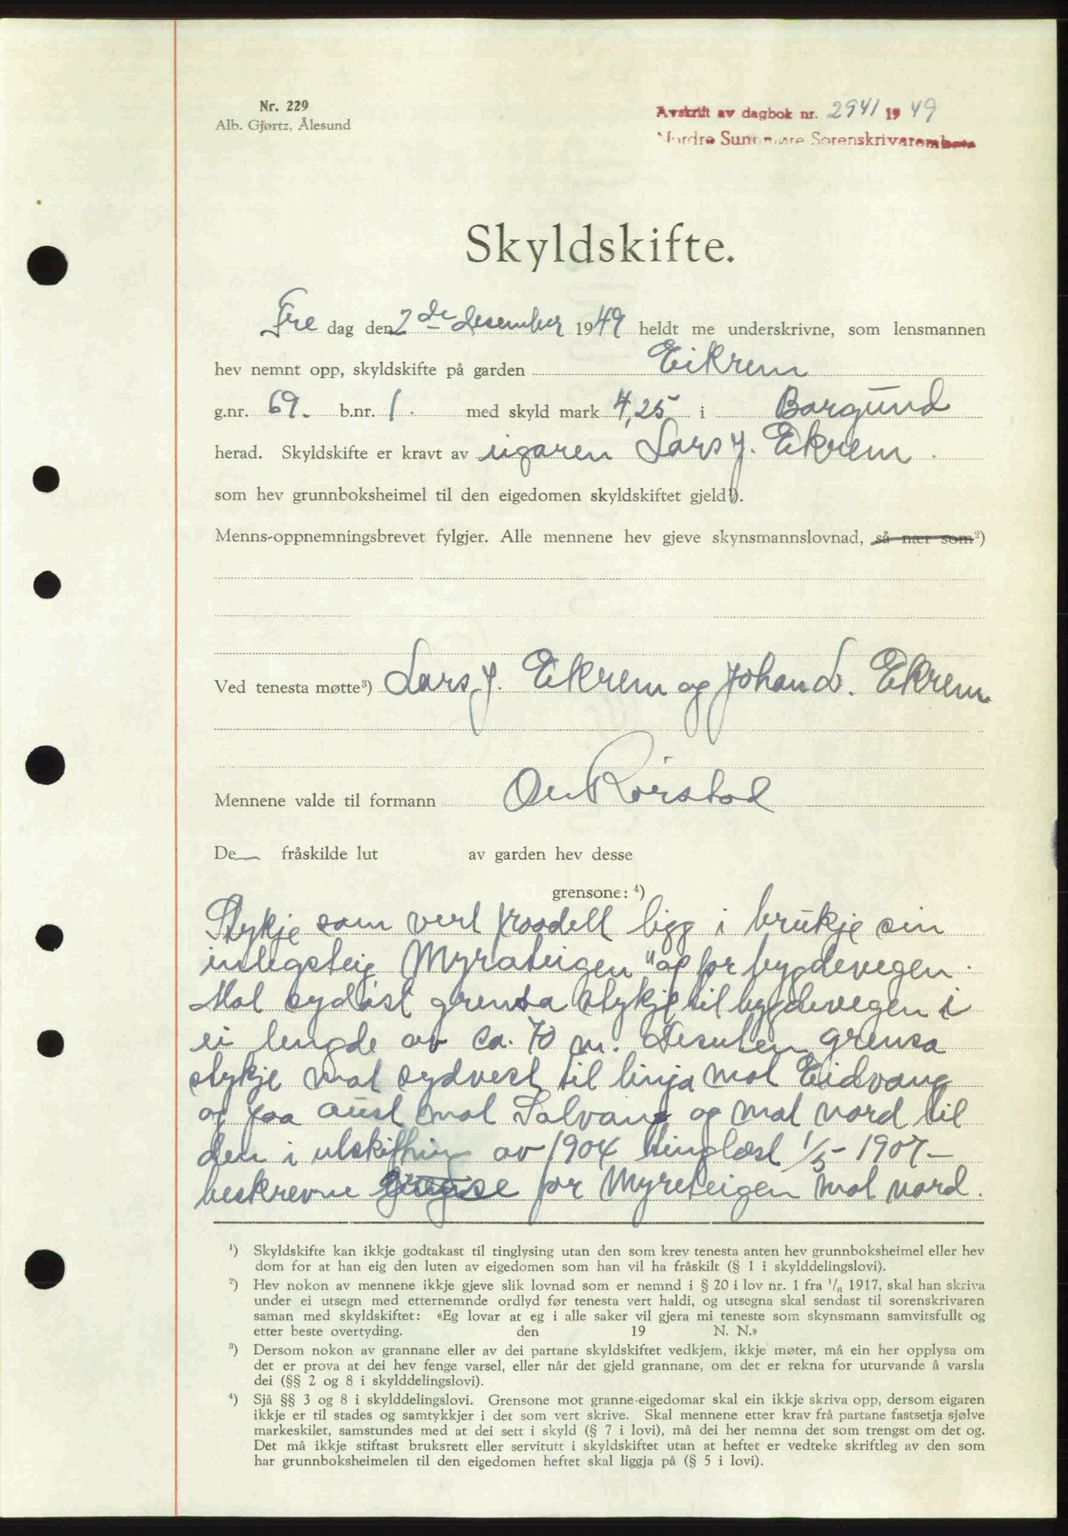 Nr. 229
Alb. Gjørtz, Ålesund
Avskrift av dagbok nr. 2941 1949
Nordre Sunnmøre Sorenskrivarembete
Skyldskifte.
Fre dag den 2de desember 1949 heldt me underskrivne, som lensmannen
hev nemnt opp, skyldskifte på garden Eikrem
g.nr. 69. b.nr. 1. med skyld mark 4,25 i Borgund
herad. Skyldskifte er kravt av eigaren Lars J. Eikrem.
som hev grunnboksheimel til den eigedomen skyldskiftet gjeld¹).
Menns-oppnemningsbrevet fylgjer. Alle mennene hev gjeve skynsmannslovnad, så nær som²)
Ved tenesta møtte³) Lars J. Eikrem og Johan L. Eikrem
Mennene valde til formann Ole Rørstad
De fråskilde lut av garden hev desse
grensone: ⁴)
Stykje som vert fraadelt ligg i brukje sin
inlegsteig Myrateigen" op for bygdevegen.
Mot sydöst grensa stykje til bygdevegen i
ei lengde av ca. 70 m. Desuten grensa
stykje mot sydvest til linja mot Eidvang
og paa aust mot Solvang og mot nord til
den i utskiftning av 1904 tinglæst 1/5-1907-
beskrevne for Myreteigen mot nord.
¹) Skyldskifte kan ikkje godtakast til tinglysing utan den som krev tenesta anten hev grunnboksheimel eller hev
dom for at han eig den luten av eigedomen som han vil ha fråskilt (§ 1 i skylddelingslovi).
²) Hev nokon av mennene ikkje gjeve slik lovnad som er nemnd i § 20 i lov nr. 1 fra 1917, skal han skriva
under ei utsegn med etternemnde ordlyd før tenesta vert haldi, og utsegna skal sendast til sorenskrivaren
saman med skyldskiftet: «Eg lovar at eg i alle saker vil gjera mi teneste som skynsmann samvitsfullt og
etter beste overtyding. den 19 N. N.»
³) Dersom nokon av grannane eller av dei partane skyldskiftet vedkjem, ikkje møter, må ein her opplysa om
det er prova at dei hev fenge varsel, eller når det gjeld grannane, om det er rekna for uturvande å varsla
dei (§§ 2 og 8 i skylddelingslovi).
⁴) Sjå §§ 3 og 8 i skylddelingslovi. Grensone mot granne-eigedomar skal ein ikkje skriva opp, dersom eigaren
ikkje er til stades og samtykkjer i det som vert skrive. Skal mennene etter krav frå partane fastsetja sjølve
markeskilet, samstundes med at dei sett i skyld (§ 7 i lovi), må dei her nemna det som trengst om det og.
Det må ikkje stiftast bruksrett eller servitutt i skyldskiftet utan at heftet er vedteke skriftleg av den som
har grunnboksheimelen til den eigedomen heftet skal liggja på (§ 5 i lovi).